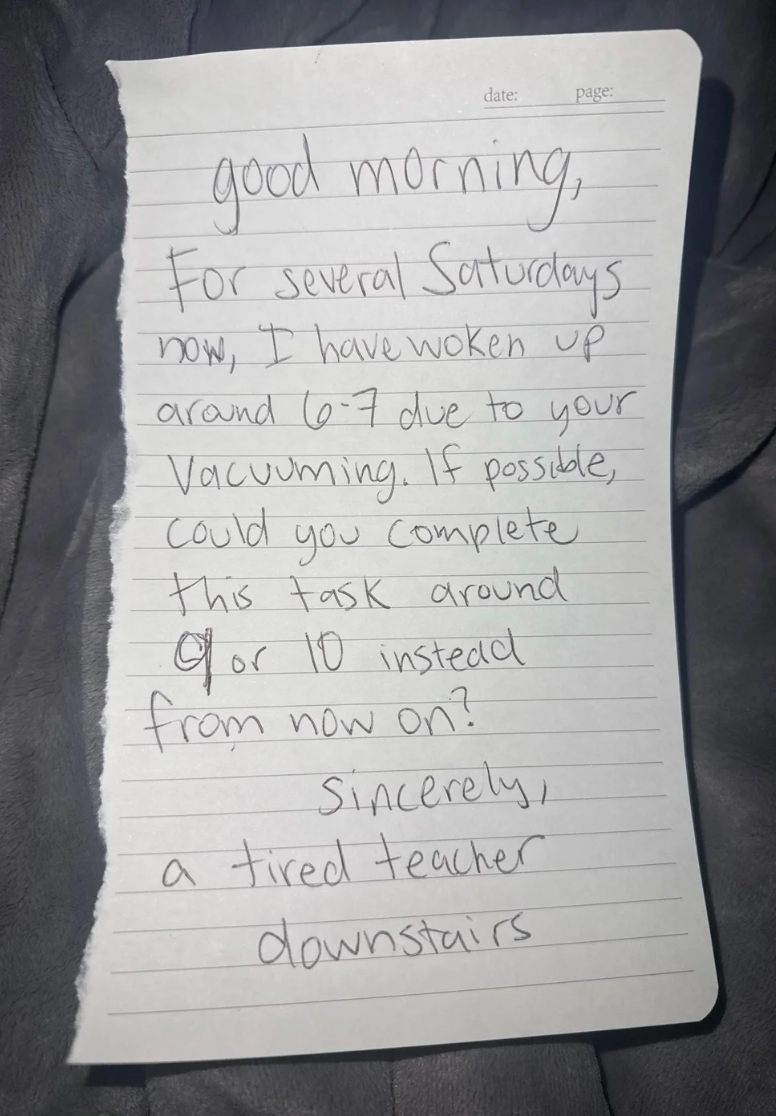 date: page:
good morning,
For several Saturdays
now, I have woken up
around 6-7 due to your
Vacuuming. If possible,
could you complete
this task around
9 or 10 instead
from now on?
sincerely,
a tired teacher
downstairs